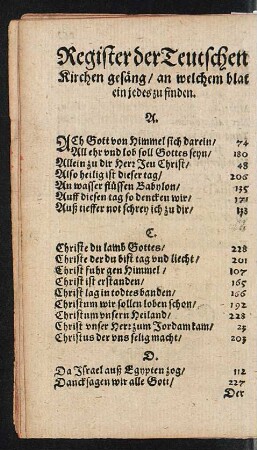 Register der Teutschen
Kirchen gesäng / an welchem blat
ein jedes zu finden.
A.
ACh Gott von Himmel sich darein / 74
All ehr vnd lob soll Gottes seyn / 180
Allein zu dir Herr Jesu Christ / 48
Also heilig ist dieser tag / 206
An wasser flüssen Babylon / 135
Auff diesen tag so dencken wir / 171
Auß tieffer not schrey ich zu dir / 138
C.
Christe du lamb Gottes / 228
Christe der du bist tag vnd liecht / 201
Christ fuhr gen Himmel / 107
Christ ist erstanden / 165
Christ lag in todtes banden / 166
Christum wir sollen loben schon / 192
Christum vnsern Heiland / 228
Christ vnser Herr zum Jordam kam / 23
Christus der vns selig macht / 203
D.
Da Israel auß Egypten zog / 112
Danck sagen wir alle Gott / 227
Der